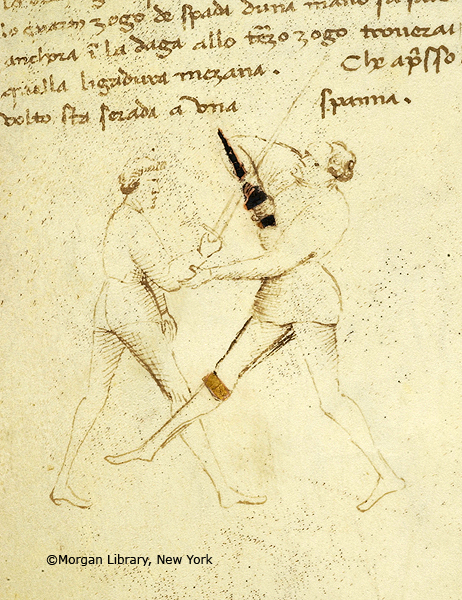 zogo de spada duna mano
anchora i la daga allo terzo zogo troverai
quella ligadura mezana. Che apsso
volto sta serada a una spanna.
©Morgan Library, New York